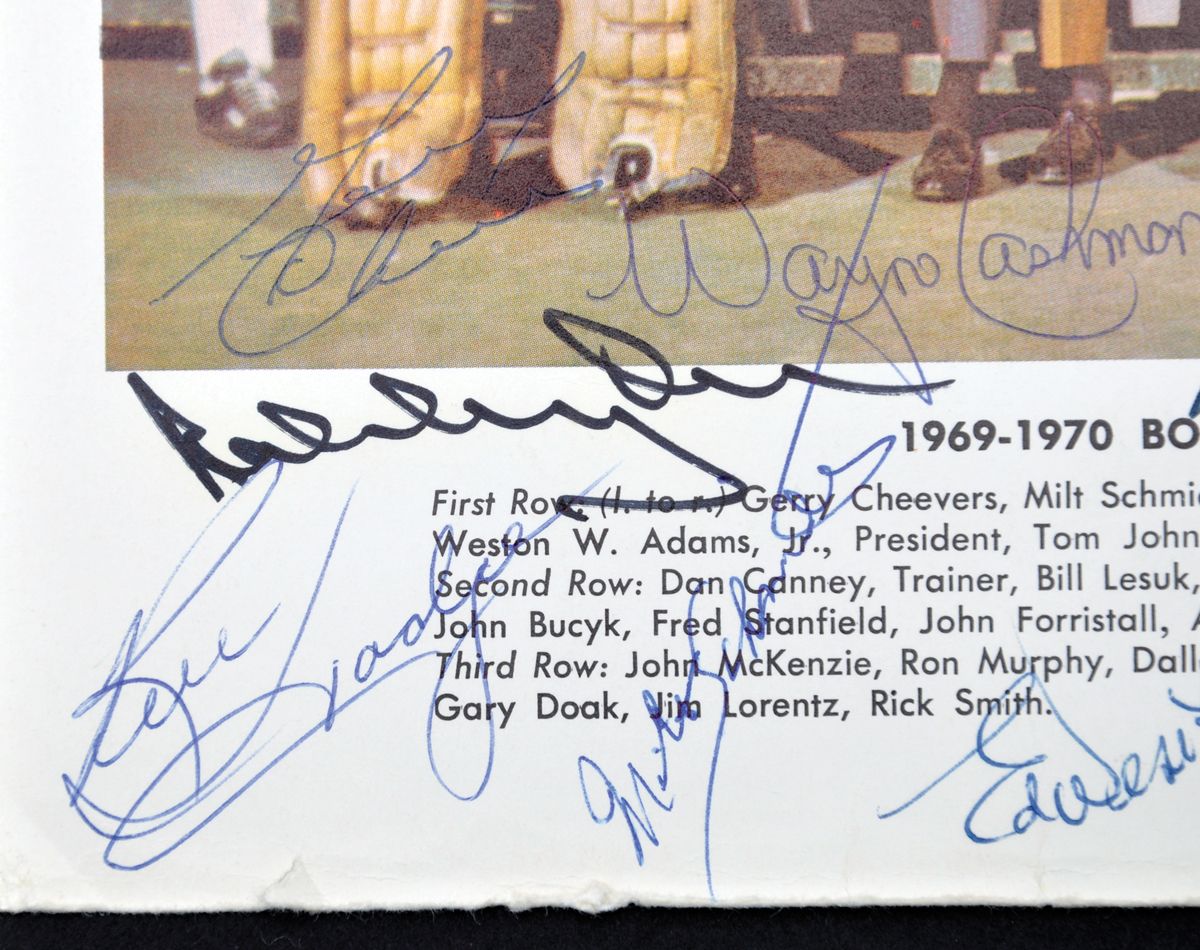 Gerry Cheevers
Wayne Cashman
1969-1970 BO
First Row: (l. to r.) Gerry Cheevers, Milt Schmi
Weston W. Adams, Jr., President, Tom John
Second Row: Dan Canney, Trainer, Bill Lesuk,
John Bucyk, Fred Stanfield, John Forristall, A
Third Row: John McKenzie, Ron Murphy, Dall
Gary Doak, Jim Lorentz, Rick Smith.
Milt Schmidt